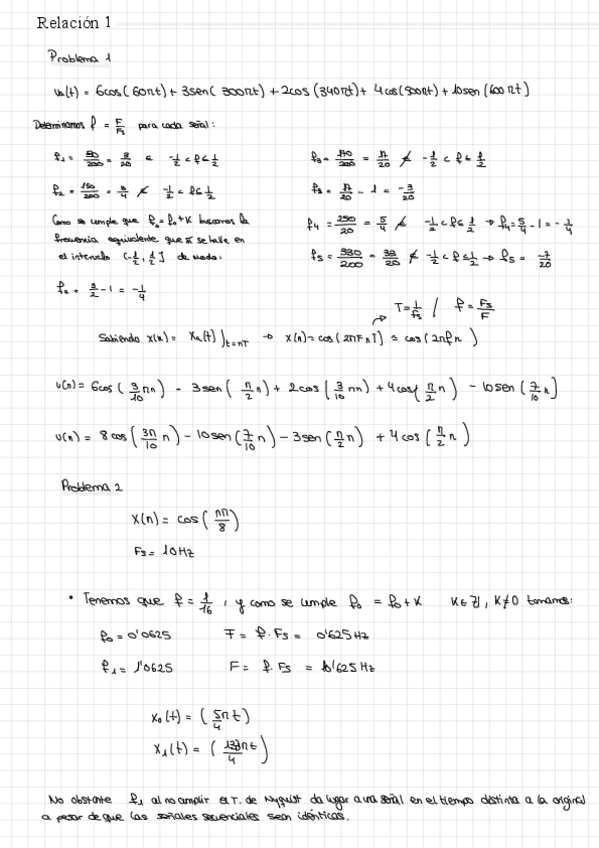 Relación 1
Problema 1
6cos(60πt) + 3sen(300πt) + 2cos(340πt) + 4cos(500πt) + 10sen(
Determinamos f = F/Fs para cada señal:
= 3/20 ∈ -1/2 < f ≤ 1/2
f₂ = 150/200 = 3/4 ∉ -1/2 < f ≤ 1/2
Como se cumple que f₀ = f₀ + K buscamos la
frecuencia equivalente que se halle en
el intervalo (-1/2, 1/2] de modo:
f₂ = - 1 = -1/4
f₃ = 170/200 = 17/20 ∉ -1/2 < f ≤ 1/2
f₃ = 17/20 - 1 = -3/20
f₄ = 250/20 = 5/4 ∉ -1/2 < f ≤ 1/2 → f₄ = 5/4 - 1 = -1/4
f₅ = ∉ -1/2 < f ≤ 1/2 → f₅ = -7/20
T = 1/Fs / f = Fs/F
Sabiendo x(n) = xa(t)|t=nT → x(n) = cos(2πFnT) = cos(2πfn)
v(n) = 6cos(3/10 πn) - 3sen(π/2 n) + 2cos(3/10 πn) + 4cos(π/2 n) - 10sen(7/10 n)
v(n) = 8cos(3π/10 n) - 10sen(7/10 n) - 3sen(π/2 n) + 4cos(π/2 n)
Problema 2
X(n) = cos(nπ/8)
Fs = 10Hz
• Tenemos que f = 1/16, y como se cumple f₀ = f₀ + K K∈Z, K≠0 tomamos:
f₀ = 0'0625 F = f·Fs = 0'625Hz
f₁ = 1'0625 F = f·Fs = 10'625Hz
x₀(t) = (5π t/4)
x₁(t) = ( πt/4)
No obstante f₁ al no cumplir el T. de Nyquist da lugar a una señal en el tiempo distinta a la original
a pesar de que las señales secuenciales sean idénticas.